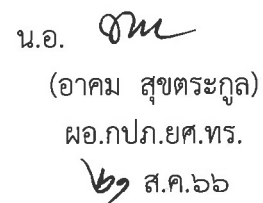 น.อ.
(อาคม สุขตระกูล)
ผอ.กปภ.ยศ.ทร.
๒๑ ส.ค.๖๖